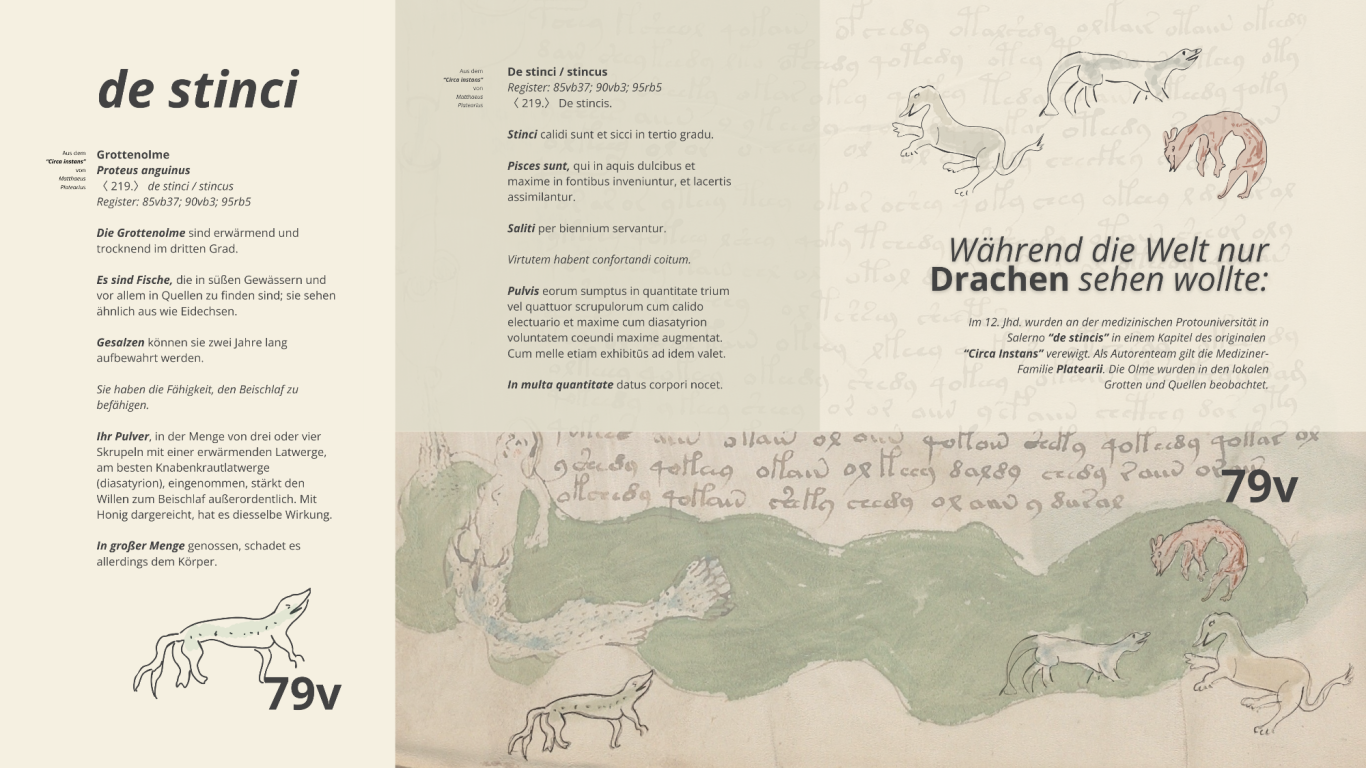 de stinci
Aus dem
"Circa Instans"
von
Matthaeus
Platearius
Grottenolme
Proteus anguinus
〈 219.〉 de stinci / stincus
Register: 85vb37; 90vb3; 95rb5
Die Grottenolme sind erwärmend und
trocknend im dritten Grad.
Es sind Fische, die in süßen Gewässern und
vor allem in Quellen zu finden sind; sie sehen
ähnlich aus wie Eidechsen.
Gesalzen können sie zwei Jahre lang
aufbewahrt werden.
Sie haben die Fähigkeit, den Beischlaf zu
befähigen.
Ihr Pulver, in der Menge von drei oder vier
Skrupeln mit einer erwärmenden Latwerge,
am besten Knabenkrautlatwerge
(diasatyrion), eingenommen, stärkt den
Willen zum Beischlaf außerordentlich. Mit
Honig dargereicht, hat es diesselbe Wirkung.
In großer Menge genossen, schadet es
allerdings dem Körper.
79v
Aus dem
"Circa Instans"
von
Matthaeus
Platearius
De stinci / stincus
Register: 85vb37; 90vb3; 95rb5
〈 219.〉 De stincis.
Stinci calidi sunt et sicci in tertio gradu.
Pisces sunt, qui in aquis dulcibus et
maxime in fontibus inveniuntur, et lacertis
assimilantur.
Saliti per biennium servantur.
Virtutem habent confortandi coitum.
Pulvis eorum sumptus in quantitate trium
vel quattuor scrupulorum cum calido
electuario et maxime cum diasatyrion
voluntatem coeundi maxime augmentat.
Cum melle etiam exhibitūs ad idem valet.
In multa quantitate datus corpori nocet.
Während die Welt nur
Drachen sehen wollte:
Im 12. Jhd. wurden an der medizinischen Protouniversität in
Salerno "de stincis" in einem Kapitel des originalen
"Circa Instans" verewigt. Als Autorenteam gilt die Mediziner-
Familie Platearii. Die Olme wurden in den lokalen
Grotten und Quellen beobachtet.
79v